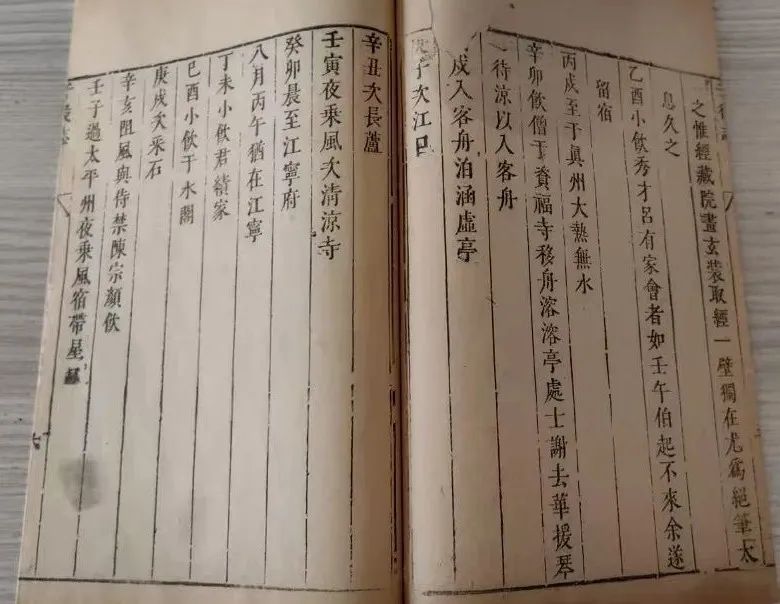 之惟經藏院畫玄裝取經一壁獨在尤爲絕筆太
息久之
乙酉小飲秀才呂有家會者如壬午伯起不來余遂
留宿
丙戌至于眞州大熱無水
辛卯飲僧于資福寺移舟溶溶亭處士謝去華援琴
待涼以入客舟
戌入客舟泊涵虛亭
子次江口
辛丑次長蘆
壬寅夜乘風次清涼寺
癸卯晨至江寧府
八月丙午猶在江寧
丁未小飲君績家
己酉小飲于水閣
庚戌次采石
辛亥阻風與侍禁陳宗顏飲
壬子過太平州夜乘風宿帶星